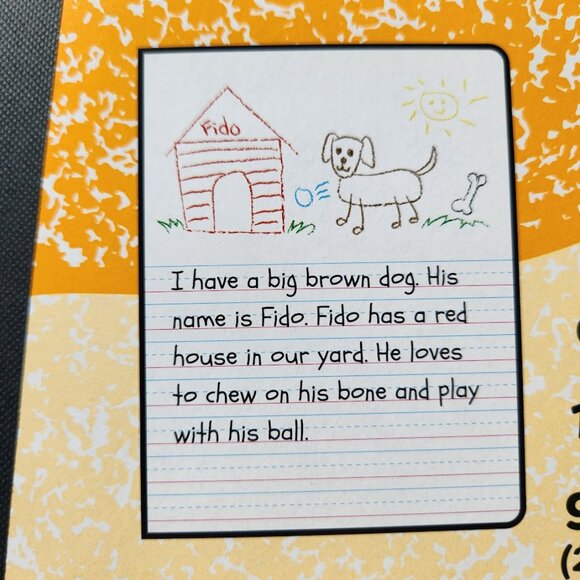 Fido
I have a big brown dog. His
name is Fido. Fido has a red
house in our yard. He loves
to chew on his bone and play
with his ball.